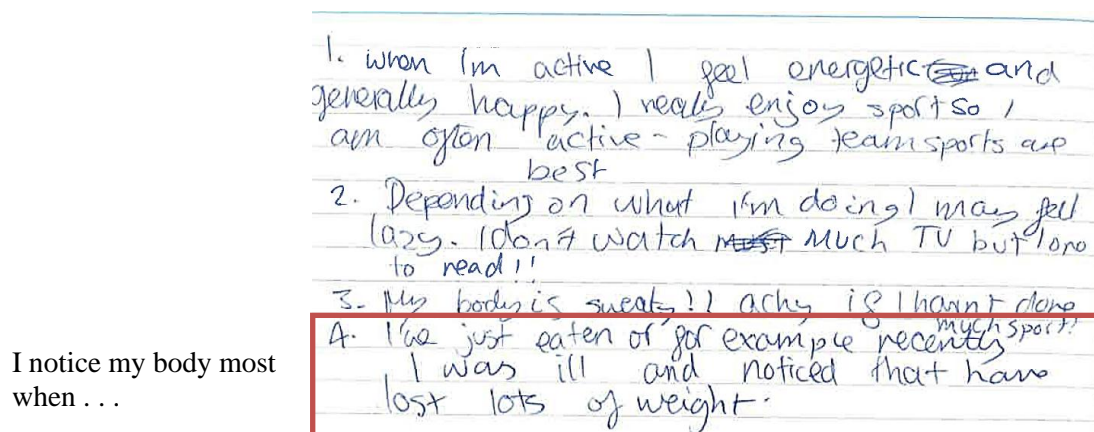 1. when I'm active I feel energetic and
generally happy. I really enjoy sport so I
am often active - playing team sports are
best
2. Depending on what I'm doing I may fell
lazy. I don't watch much TV but love
to read!!
3. My body is sweaty!! achy if I havn't done
much sport!
4. I've just eaten or for example recently
I was ill and noticed that have
lost lots of weight.
I notice my body most
when . . .